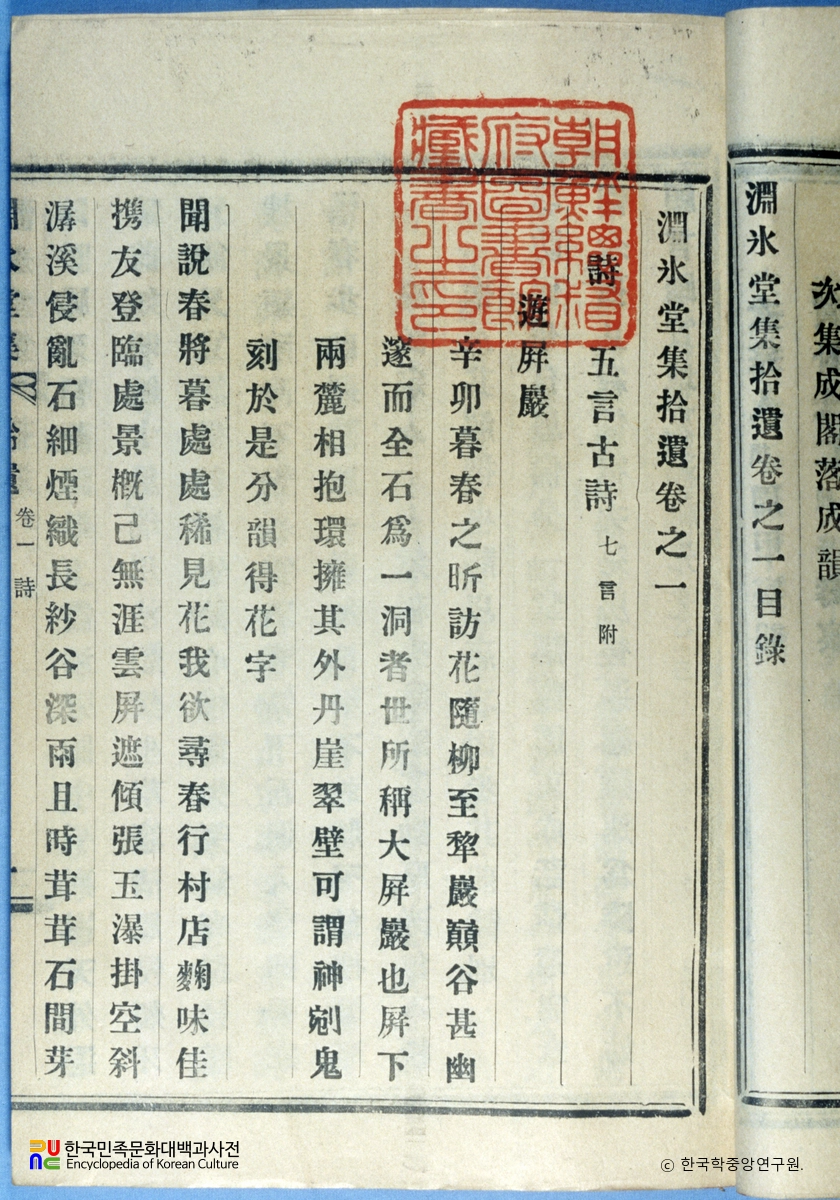 㳄集成閣落成韻
淵氷堂集拾遺卷之一目錄
淵氷堂集拾遺卷之一
詩 五言古詩 七言附
遊屛巖
辛卯暮春之昕訪花隨柳至犂巖巓谷甚幽
邃而全石爲一洞者世所稱大屛巖也屛下
兩麓相抱環擁其外丹崖翠壁可謂神剜鬼
刻於是分韻得花字
聞說春將暮處處稀見花我欲尋春行村店麴味佳
携友登臨處景槪已無涯雲屛遮傾張玉瀑掛空斜
潺溪侵亂石細煙織長紗谷深雨且時茸茸石間芽
淵氷堂集 拾遺 卷一 詩 一
朝鮮總督府圖書館藏書之印
한국민족문화대백과사전
Encyclopedia of Korean Culture
© 한국학중앙연구원.